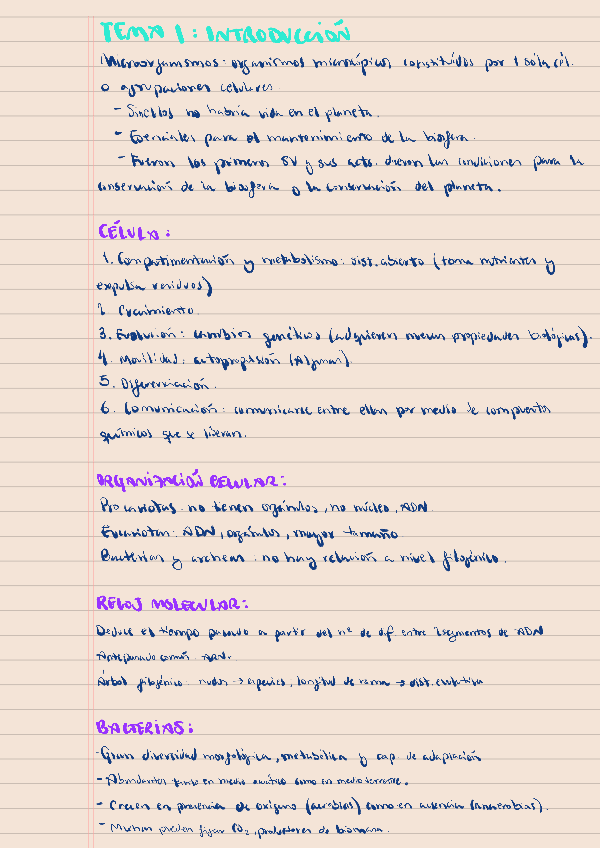 TEMA 1: INTRODUCCIÓN
Microorganismos: organismos microscópicos, constituidos por 1 sola cél.
o agrupaciones celulares
- Sin ellos no habría vida en el planeta.
- Esenciales para el mantenimiento de la biosfera.
- Fueron los primeros SV y sus acts. dieron las condiciones para la
conservación de la biosfera o la conservación del planeta.
CÉLULA:
1. Compartimentación y metabolismo: sist. abierto (toma nutrientes y
expulsa residuos)
2. Crecimiento.
3. Evolución: cambios genéticos (adquieren nuevas propiedades biológicas).
4. Movilidad: autopropulsión (Algunas).
5. Diferenciación.
6. Comunicación: comunicarse entre ellas por medio de compuestos
químicos que se liberan.
ORGANIZACIÓN CELULAR:
Procariotas: no tienen orgánulos, no núcleo, ADN.
Eucariotas: ADN, orgánulos, mayor tamaño
Bacterias y archeas: no hay relación a nivel filogénico.
RELOJ MOLECULAR:
Deduce el tiempo pasado a partir del nº de dif entre 2 segmentos de ADN
Antepasado común ARN.
Árbol filogénico: nudos -> especies, longitud de rama -> dist. evolutiva
BACTERIAS:
- Gran diversidad morfológica, metabólica y cap. de adaptación
- Abundantes tanto en medio acuático como en medio terrestre.
- Crecen en presencia de oxígeno (aerobias) como en ausencia (anaerobias).
- Muchas pueden fijar CO2, productores de biomasa.